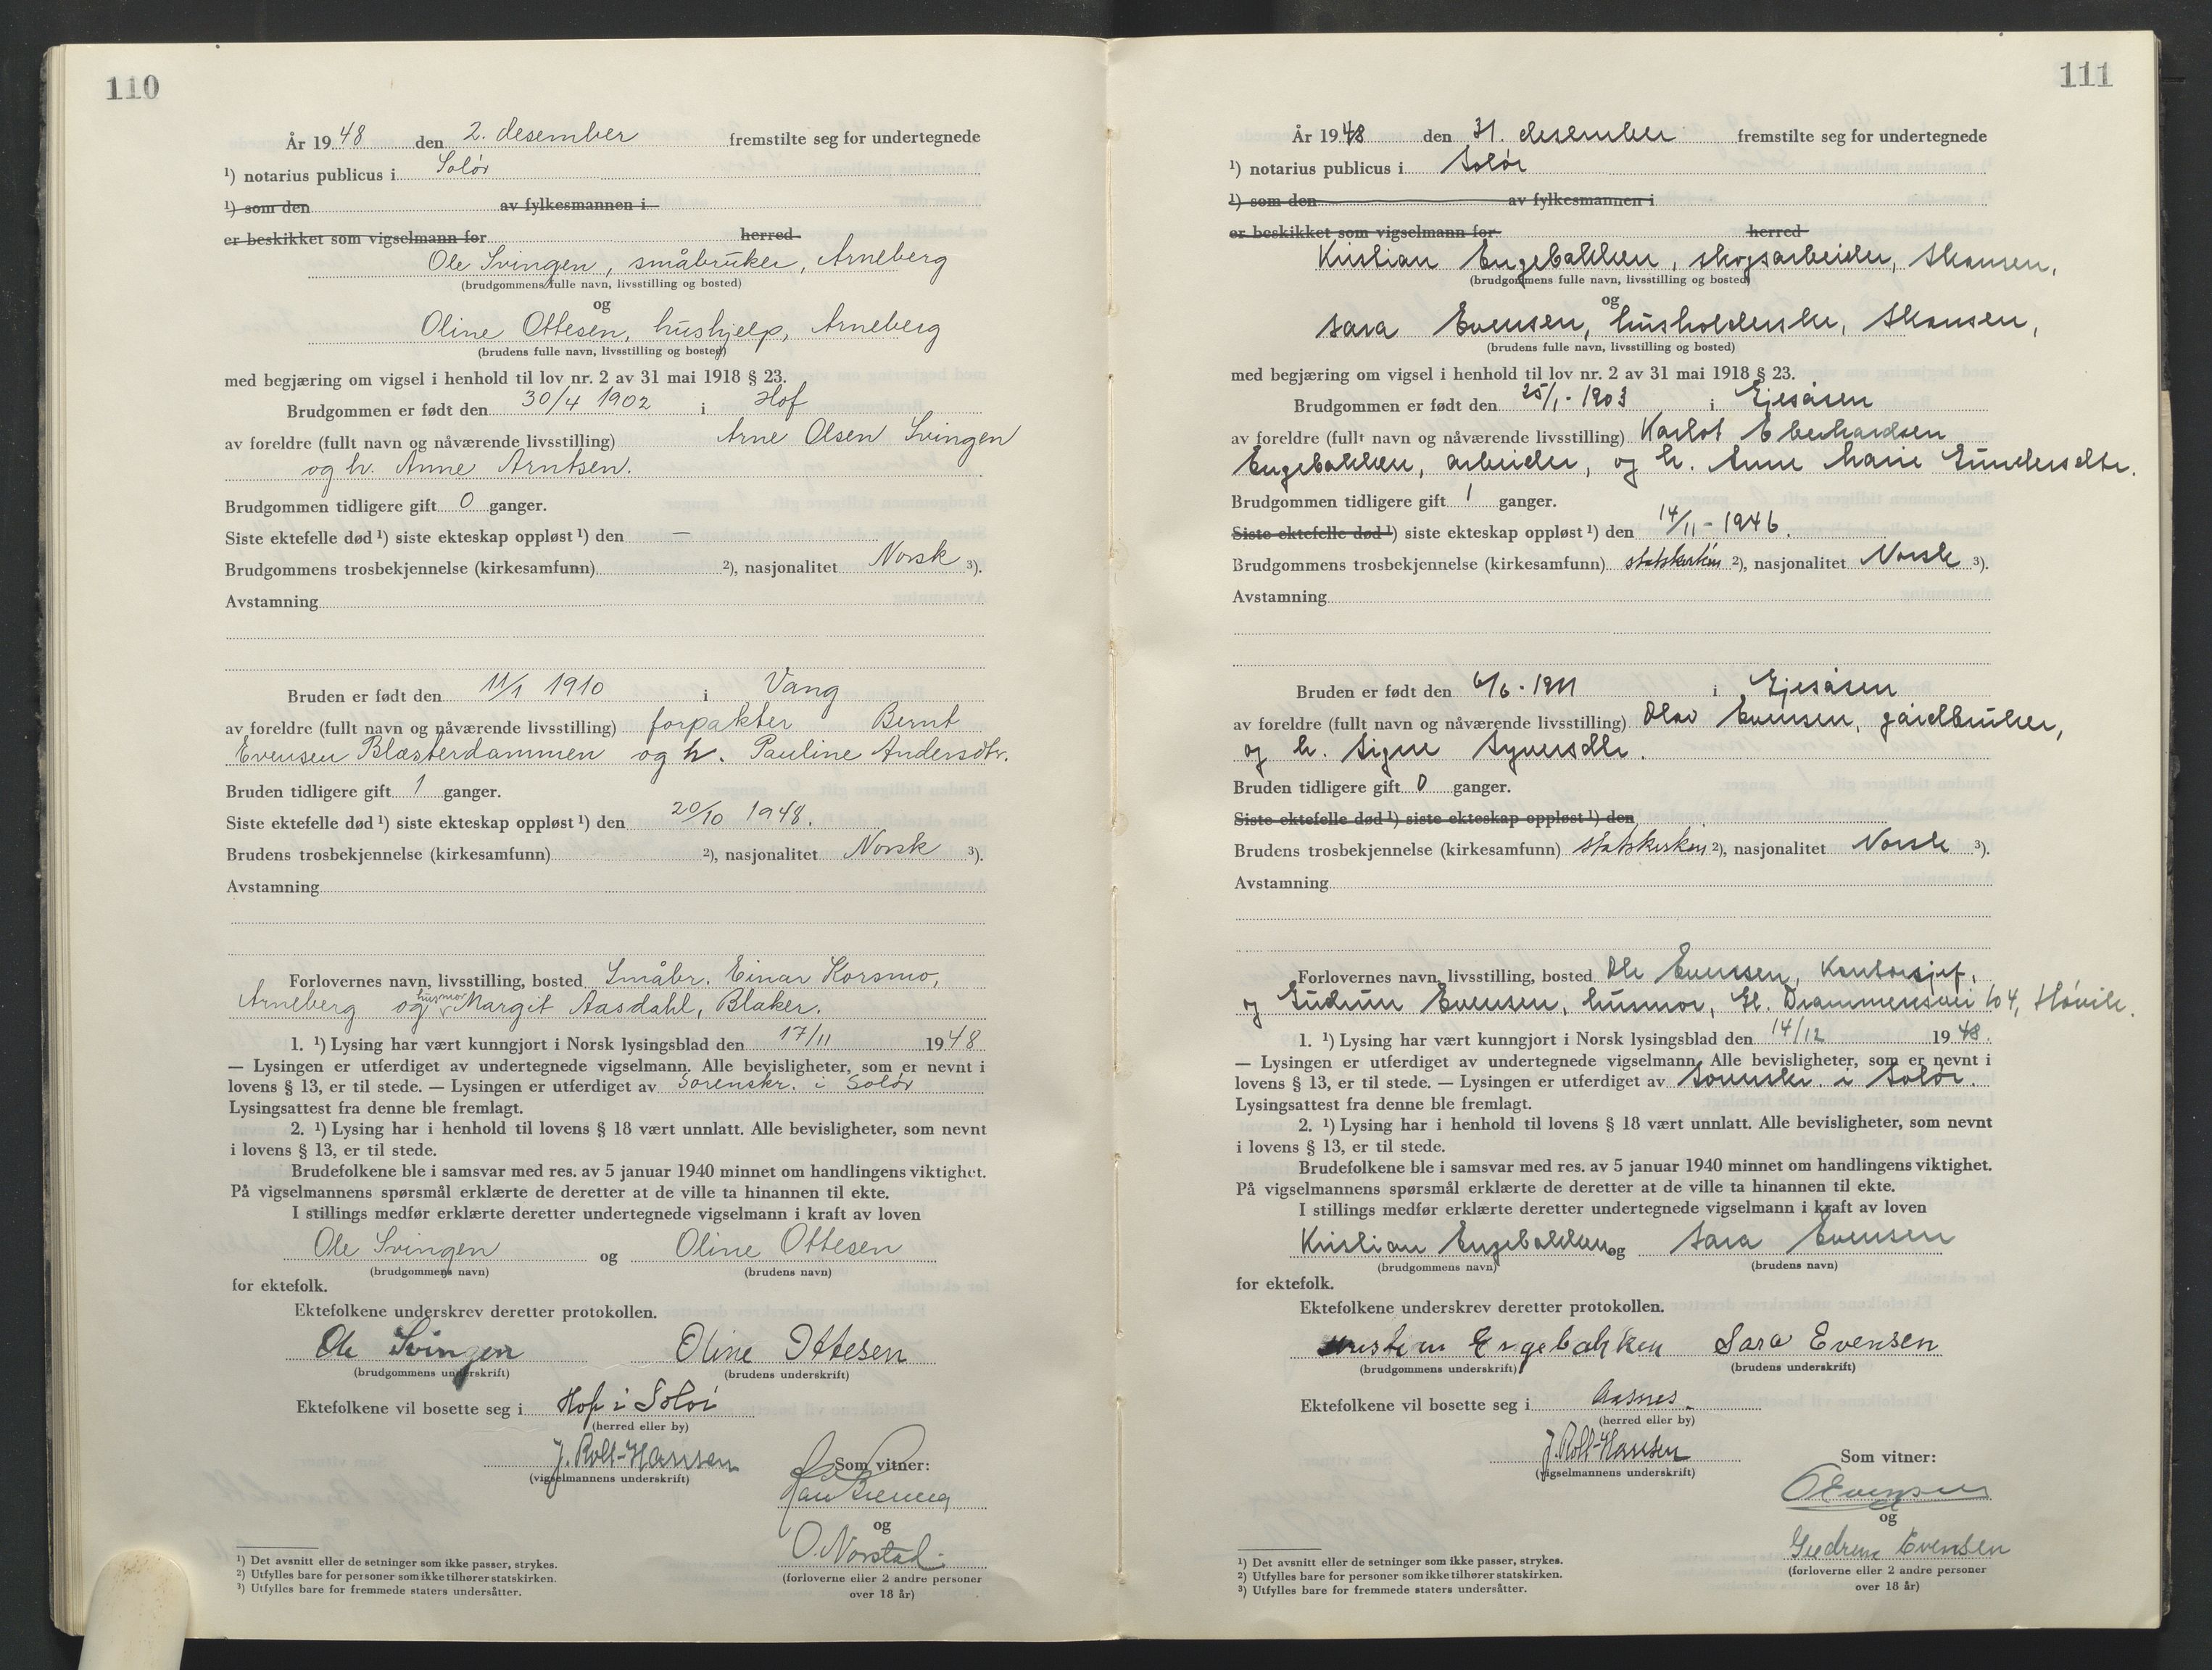 110
År 19 48 den 2. desember fremstilte seg for undertegnede
¹) notarius publicus i Solør
¹) som den av fylkesmannen i
er beskikket som vigselmann for herred
Ole Svingen, småbruker, Arneberg
(brudgommens fulle navn, livsstilling og bosted)
og
Oline Ottesen, hushjelp, Arneberg
(brudens fulle navn, livsstilling og bosted)
med begjæring om vigsel i henhold til lov nr. 2 av 31 mai 1918 § 23.
Brudgommen er født den 30/4 1902 i Hof
av foreldre (fullt navn og nåværende livsstilling) Arne Olsen Svingen
og h. Anne Arntsen.
Brudgommen tidligere gift 0 ganger.
Siste ektefelle død ¹) siste ekteskap oppløst ¹) den —
Brudgommens trosbekjennelse (kirkesamfunn) ²), nasjonalitet Norsk ³).
Avstamning
Bruden er født den 11/1 1910 i Vang
av foreldre (fullt navn og nåværende livsstilling) forpakter Bernt
Evensen Blæsterdammen og h. Pauline Andersdtr.
Bruden tidligere gift 1 ganger.
Siste ektefelle død ¹) siste ekteskap oppløst ¹) den 20/10 1948.
Brudens trosbekjennelse (kirkesamfunn) ²), nasjonalitet Norsk ³).
Avstamning
Forlovernes navn, livsstilling, bosted Småbr. Einar Korsmo,
Arneberg og husmor Margit Aasdahl, Blaker.
1. ¹) Lysing har vært kunngjort i Norsk lysingsblad den 17/11 19 48
— Lysingen er utferdiget av undertegnede vigselmann. Alle bevisligheter, som er nevnt i
lovens § 13, er til stede. — Lysingen er utferdiget av Sorenskr. i Solør
Lysingsattest fra denne ble fremlagt.
2. ¹) Lysing har i henhold til lovens § 18 vært unnlatt. Alle bevisligheter, som nevnt
i lovens § 13, er til stede.
Brudefolkene ble i samsvar med res. av 5 januar 1940 minnet om handlingens viktighet.
På vigselmannens spørsmål erklærte de deretter at de ville ta hinannen til ekte.
I stillings medfør erklærte deretter undertegnede vigselmann i kraft av loven
Ole Svingen og Oline Ottesen
(brudgommens navn) (brudens navn)
for ektefolk.
Ektefolkene underskrev deretter protokollen.
Ole Svingen Oline Ottesen
(brudgommens underskrift) (brudens underskrift)
Ektefolkene vil bosette seg i Hof i Solør
(herred eller by)
J. Roll-Hansen
(vigselmannens underskrift)
Som vitner:
og
O. Norstad
(forloverne eller 2 andre personer
over 18 år)
¹) Det avsnitt eller de setninger som ikke passer, strykes.
²) Utfylles bare for personer som ikke tilhører statskirken.
³) Utfylles bare for fremmede staters undersåtter.
111
År 19 48 den 31. desember fremstilte seg for undertegnede
¹) notarius publicus i Solør
¹) som den av fylkesmannen i
er beskikket som vigselmann for herred
Kristian Engebakken, skogsarbeider, Skansen,
(brudgommens fulle navn, livsstilling og bosted)
og
Sara Evensen, husholderske, Skansen,
(brudens fulle navn, livsstilling og bosted)
med begjæring om vigsel i henhold til lov nr. 2 av 31 mai 1918 § 23.
Brudgommen er født den 25/1 - 1903 i Gjesåsen
av foreldre (fullt navn og nåværende livsstilling) Karlot Eberhardsen
Engebakken, arbeider, og h. Anne Marie Gundersdtr.
Brudgommen tidligere gift 1 ganger.
Siste ektefelle død ¹) siste ekteskap oppløst ¹) den 14/11 - 1946.
Brudgommens trosbekjennelse (kirkesamfunn) statskirken ²), nasjonalitet Norsk ³).
Avstamning
Bruden er født den 6/6 - 1911 i Gjesåsen
av foreldre (fullt navn og nåværende livsstilling) Olav Evensen, gårdbruker,
og h. Signe Syversdtr.
Bruden tidligere gift 0 ganger.
Siste ektefelle død ¹) siste ekteskap oppløst ¹) den
Brudens trosbekjennelse (kirkesamfunn) statskirken ²), nasjonalitet Norsk ³).
Avstamning
Forlovernes navn, livsstilling, bosted Ole Evensen, kontorsjef,
og Gudrun Evensen, husmor, Gl. Drammensvei 104, Høvik.
1. ¹) Lysing har vært kunngjort i Norsk lysingsblad den 14/12 19 48.
— Lysingen er utferdiget av undertegnede vigselmann. Alle bevisligheter, som er nevnt i
lovens § 13, er til stede. — Lysingen er utferdiget av Sorenskr. i Solør.
Lysingsattest fra denne ble fremlagt.
2. ¹) Lysing har i henhold til lovens § 18 vært unnlatt. Alle bevisligheter, som nevnt
i lovens § 13, er til stede.
Brudefolkene ble i samsvar med res. av 5 januar 1940 minnet om handlingens viktighet.
På vigselmannens spørsmål erklærte de deretter at de ville ta hinannen til ekte.
I stillings medfør erklærte deretter undertegnede vigselmann i kraft av loven
Kristian Engebakken og Sara Evensen
(brudgommens navn) (brudens navn)
for ektefolk.
Ektefolkene underskrev deretter protokollen.
Kristian Engebakken Sara Evensen
(brudgommens underskrift) (brudens underskrift)
Ektefolkene vil bosette seg i Aasnes.
(herred eller by)
J. Roll-Hansen
(vigselmannens underskrift)
Som vitner:
O Evensen
og
Gudrun Evensen
(forloverne eller 2 andre personer
over 18 år)
¹) Det avsnitt eller de setninger som ikke passer, strykes.
²) Utfylles bare for personer som ikke tilhører statskirken.
³) Utfylles bare for fremmede staters undersåtter.